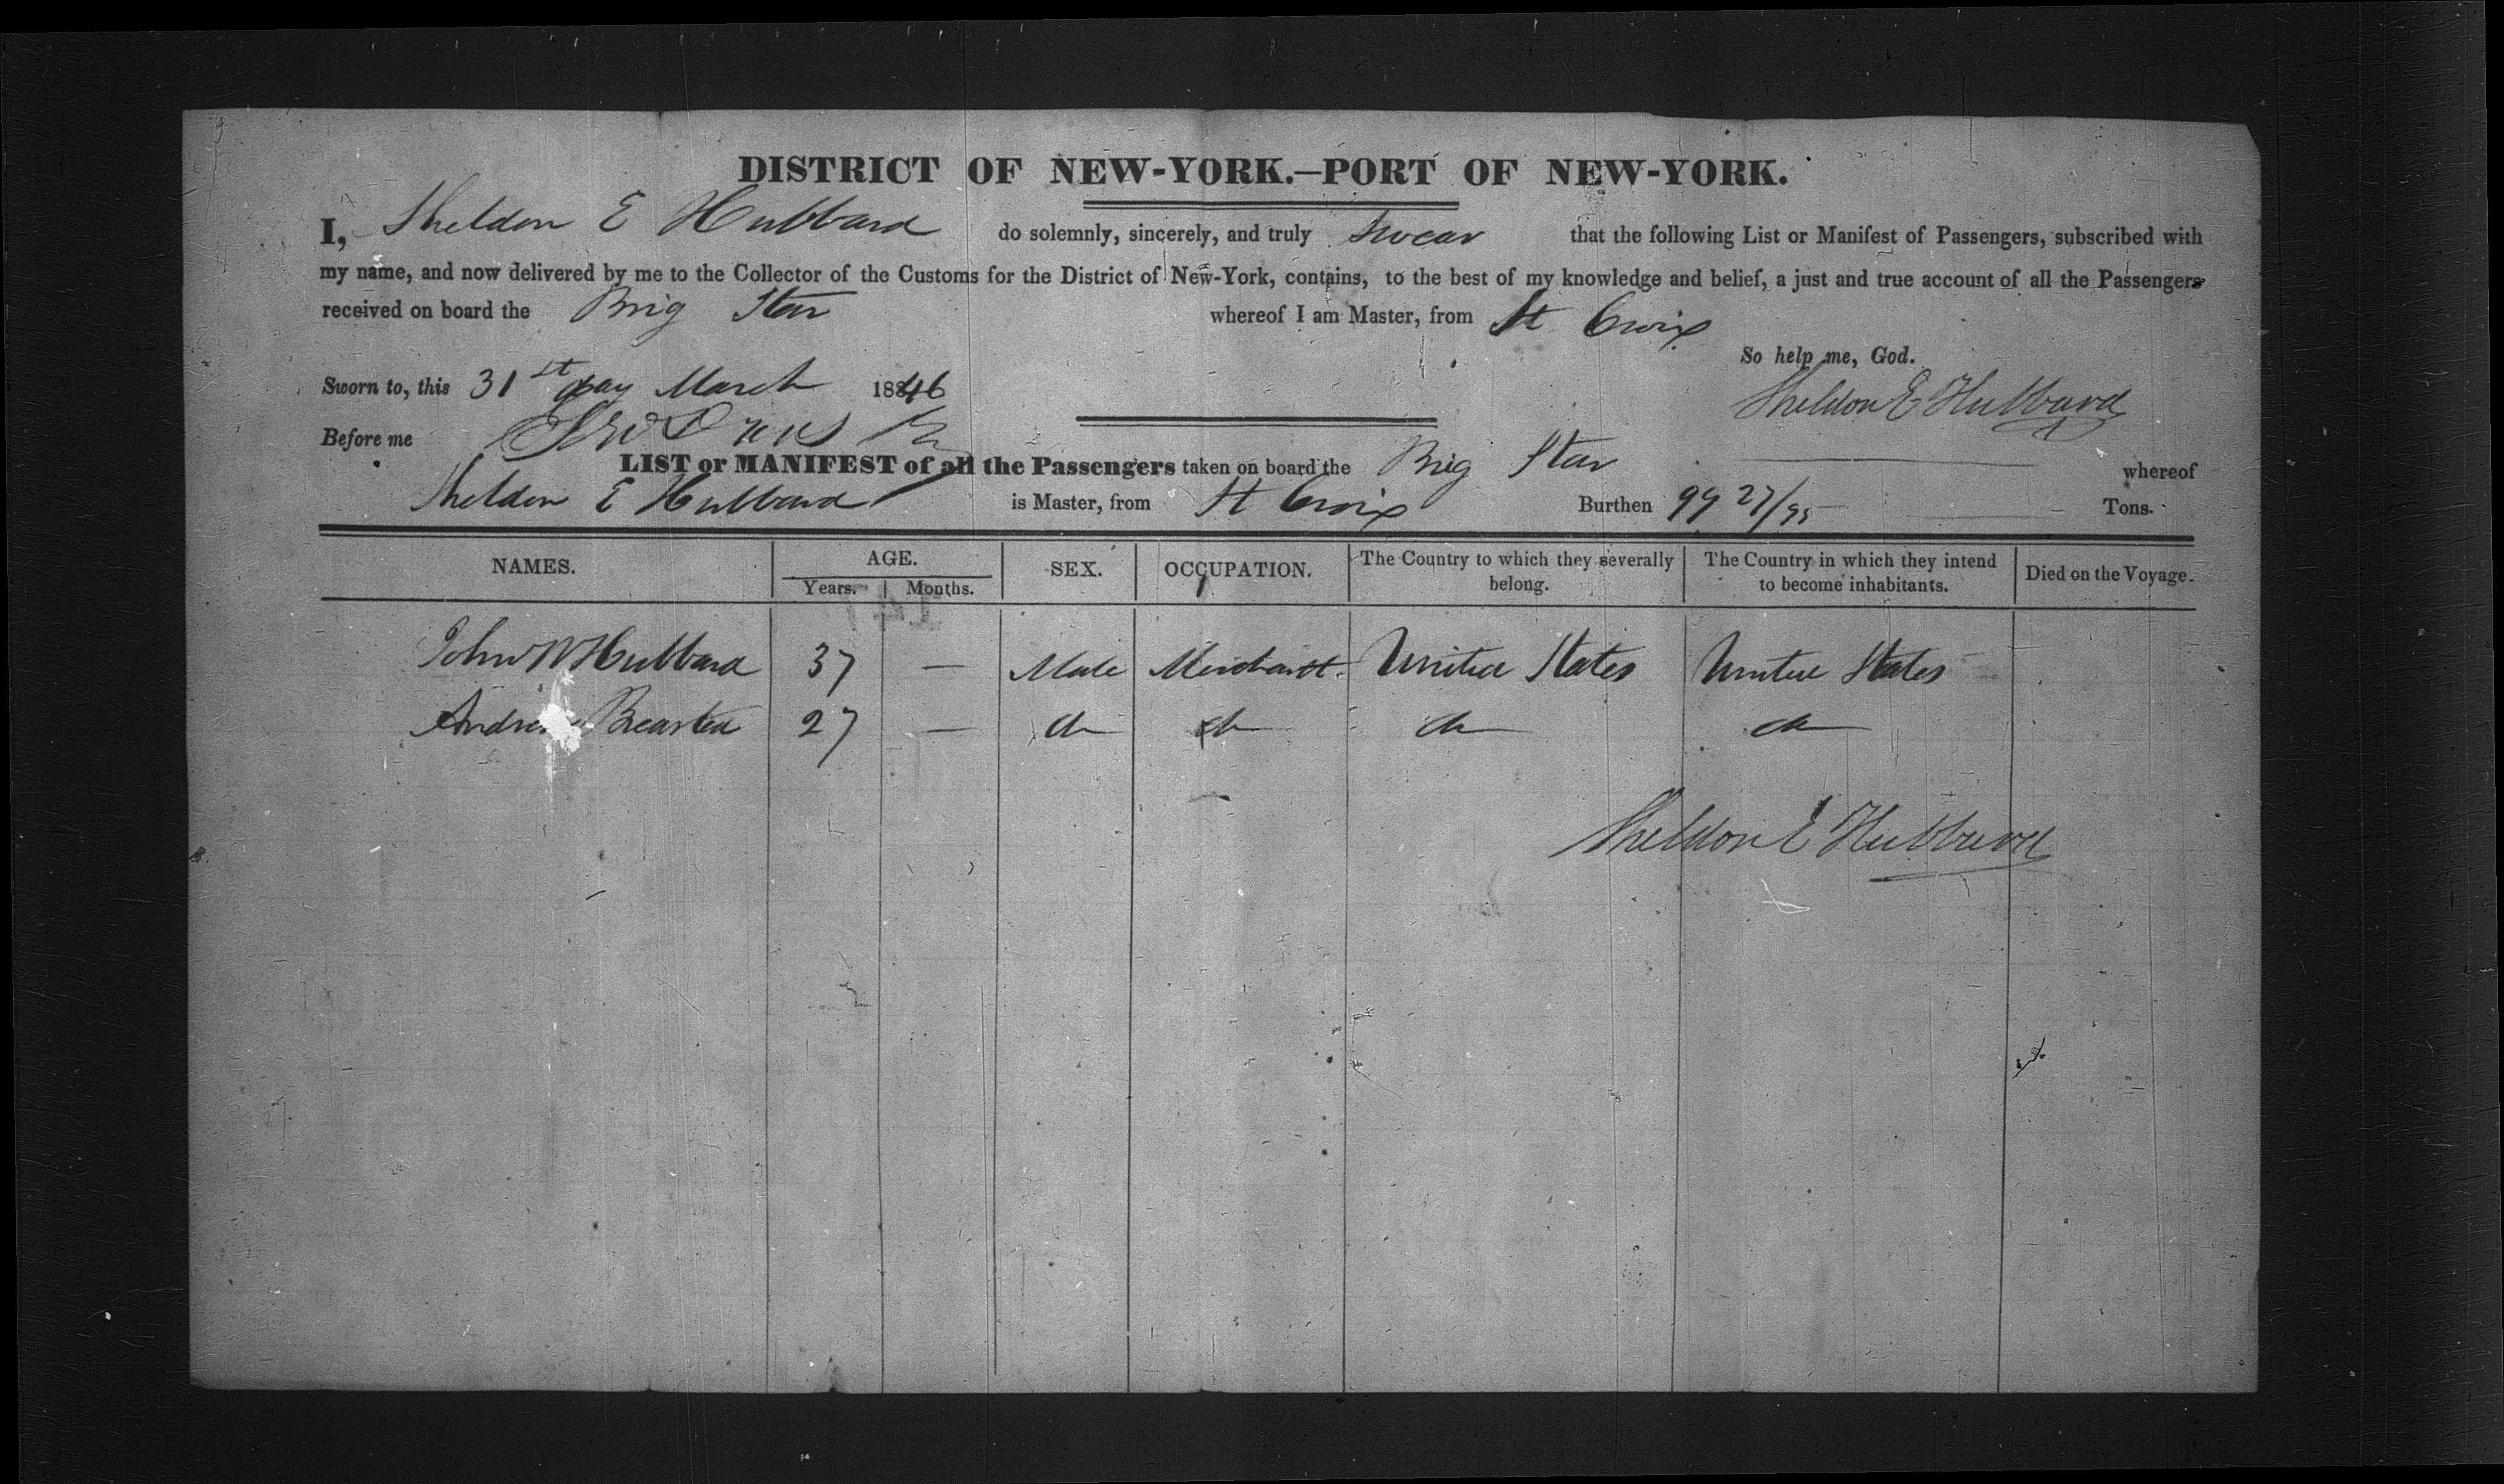 DISTRICT OF NEW-YORK.—PORT OF NEW-YORK.
I, Sheldon E Hubbard do solemnly, sincerely, and truly swear that the following List or Manifest of Passengers, subscribed with
my name, and now delivered by me to the Collector of the Customs for the District of New-York, contains, to the best of my knowledge and belief, a just and true account of all the Passengers
received on board the Brig Star whereof I am Master, from St Croix
So help me, God.
Sworn to, this 31st day March 1846
Sheldon E Hubbard
Before me
LIST or MANIFEST of all the Passengers taken on board the Brig Star whereof
Sheldon E Hubbard is Master, from St Croix Burthen 99 27/95 Tons.
NAMES. AGE. SEX. OCCUPATION. The Country to which they severally belong. The Country in which they intend to become inhabitants. Died on the Voyage.
Years. Months.
John W Hubbard 37 — Male Merchant. United States United States
27 — do do do do
Sheldon E Hubbard